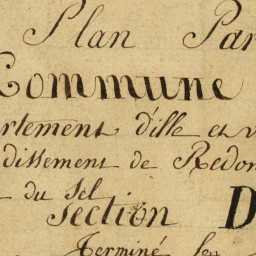 Plan Par
Commune
artement d'ille et v
dissement de Redon
du Sel
Section D
Terminé